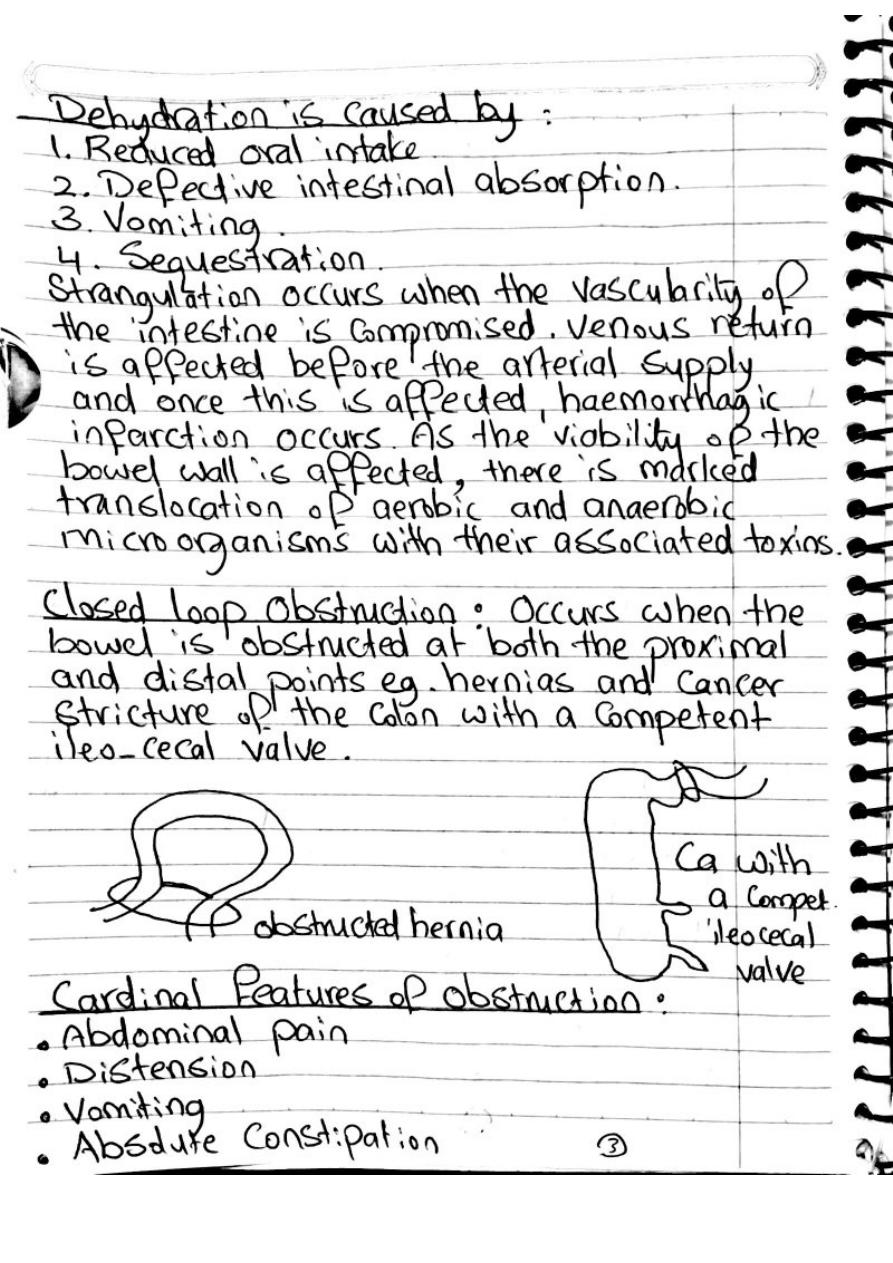 Dehydration is caused by :
1. Reduced oral intake
2. Defective intestinal absorption.
3. Vomiting.
4. Sequestration.
Strangulation occurs when the vascularity of
the intestine is compromised. Venous return
is affected before the arterial supply
and once this is affected, haemorrhagic
infarction occurs. As the viability of the
bowel wall is affected, there is marked
translocation of aerobic and anaerobic
microorganisms with their associated toxins.
Closed loop obstruction : Occurs when the
bowel is obstructed at both the proximal
and distal points eg. hernias and Cancer
Stricture of the Colon with a Competent
ileo-cecal valve.
obstructed hernia
Ca with
a Compet.
ileocecal
valve
Cardinal Features of obstruction :
• Abdominal pain
• Distension
• Vomiting
• Absolute Constipation
3